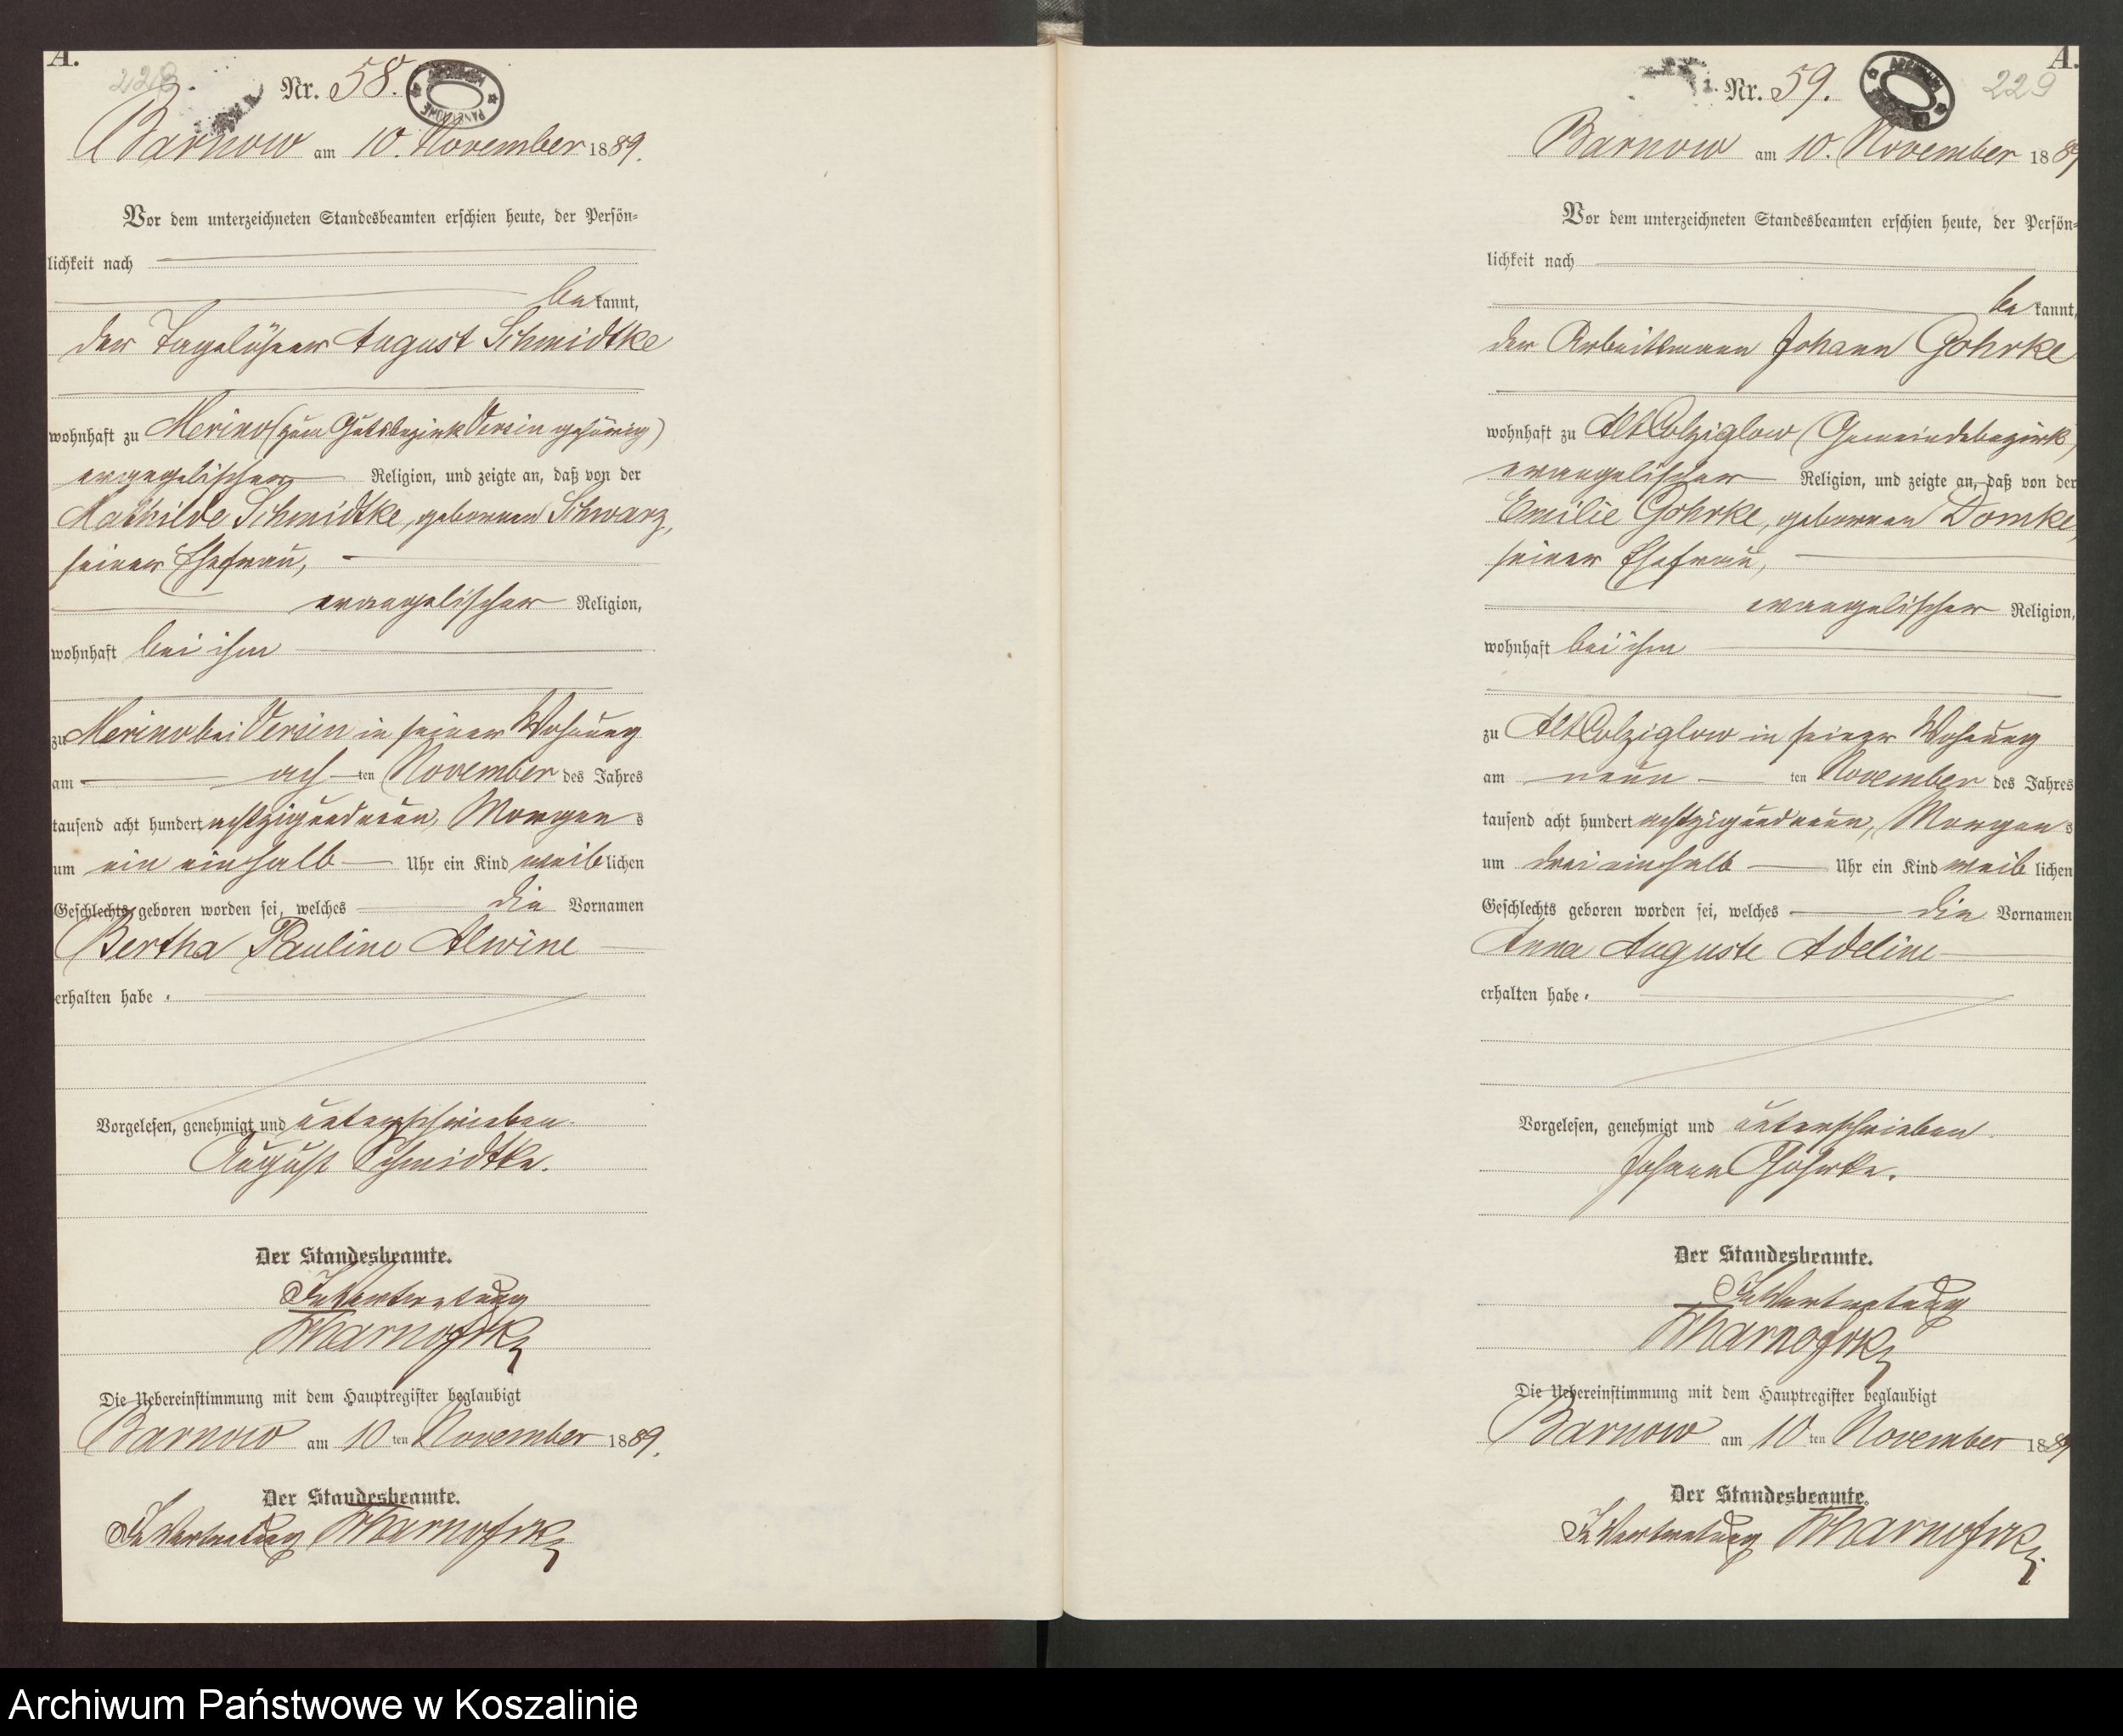 A.
228.
Nr. 58.
Barnow am 10. November 1889.
Vor dem unterzeichneten Standesbeamten erschien heute, der Persön-
lichkeit nach
bekannt,
der Tagelöhner August Schmidtke
wohnhaft zu Merino (zum Gutsbezirk Versin gehörig)
evangelischer Religion, und zeigte an, daß von der
Mathilde Schmidtke, geborenen Schwarz,
seiner Ehefrau,
evangelischer Religion,
wohnhaft bei ihm
zu Merino bei Versin in seiner Wohnung
am ach ten November des Jahres
tausend acht hundert achtzig und neun, Morgens
um ein einhalb Uhr ein Kind weiblichen
Geschlechts geboren worden sei, welches die Vornamen
Bertha Pauline Alwine
erhalten habe.
Vorgelesen, genehmigt und unterschrieben.
August Schmidtke.
Der Standesbeamte.
In Vertretung
Die Uebereinstimmung mit dem Hauptregister beglaubigt
Barnow am 10 ten November 1889.
Der Standesbeamte.
In Vertretung
A.
229
Nr. 59.
Barnow am 10. November 1889
Vor dem unterzeichneten Standesbeamten erschien heute, der Persön-
lichkeit nach
bekannt,
der Arbeitsmann Johann Gohrke
wohnhaft zu Alt Colziglow (Gemeindebezirk)
evangelischer Religion, und zeigte an, daß von der
Emilie Gohrke, geborenen Domke,
seiner Ehefrau,
evangelischer Religion,
wohnhaft bei ihm
zu Alt Colziglow in seiner Wohnung
am neun ten November des Jahres
tausend acht hundert achtzig und neun, Morgens
um drei einhalb Uhr ein Kind weiblichen
Geschlechts geboren worden sei, welches die Vornamen
Anna Auguste Adeline
erhalten habe.
Vorgelesen, genehmigt und unterschrieben.
Johann Gohrke.
Der Standesbeamte.
In Vertretung
Die Uebereinstimmung mit dem Hauptregister beglaubigt
Barnow am 10 ten November 1889
Der Standesbeamte.
In Vertretung
Archiwum Państwowe w Koszalinie